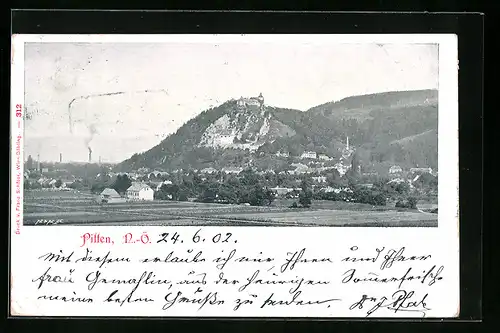 312
Druck v. Franz Schöler, Wien-Döbling.
Pitten, N.-Ö. 24. 6. 02.
mit diesem erlaube ich mir Ihnen und Ihrer
Frau Gemahlin, aus der heurigen Sommerfrische
meine besten Grüße zu senden. Dr J.